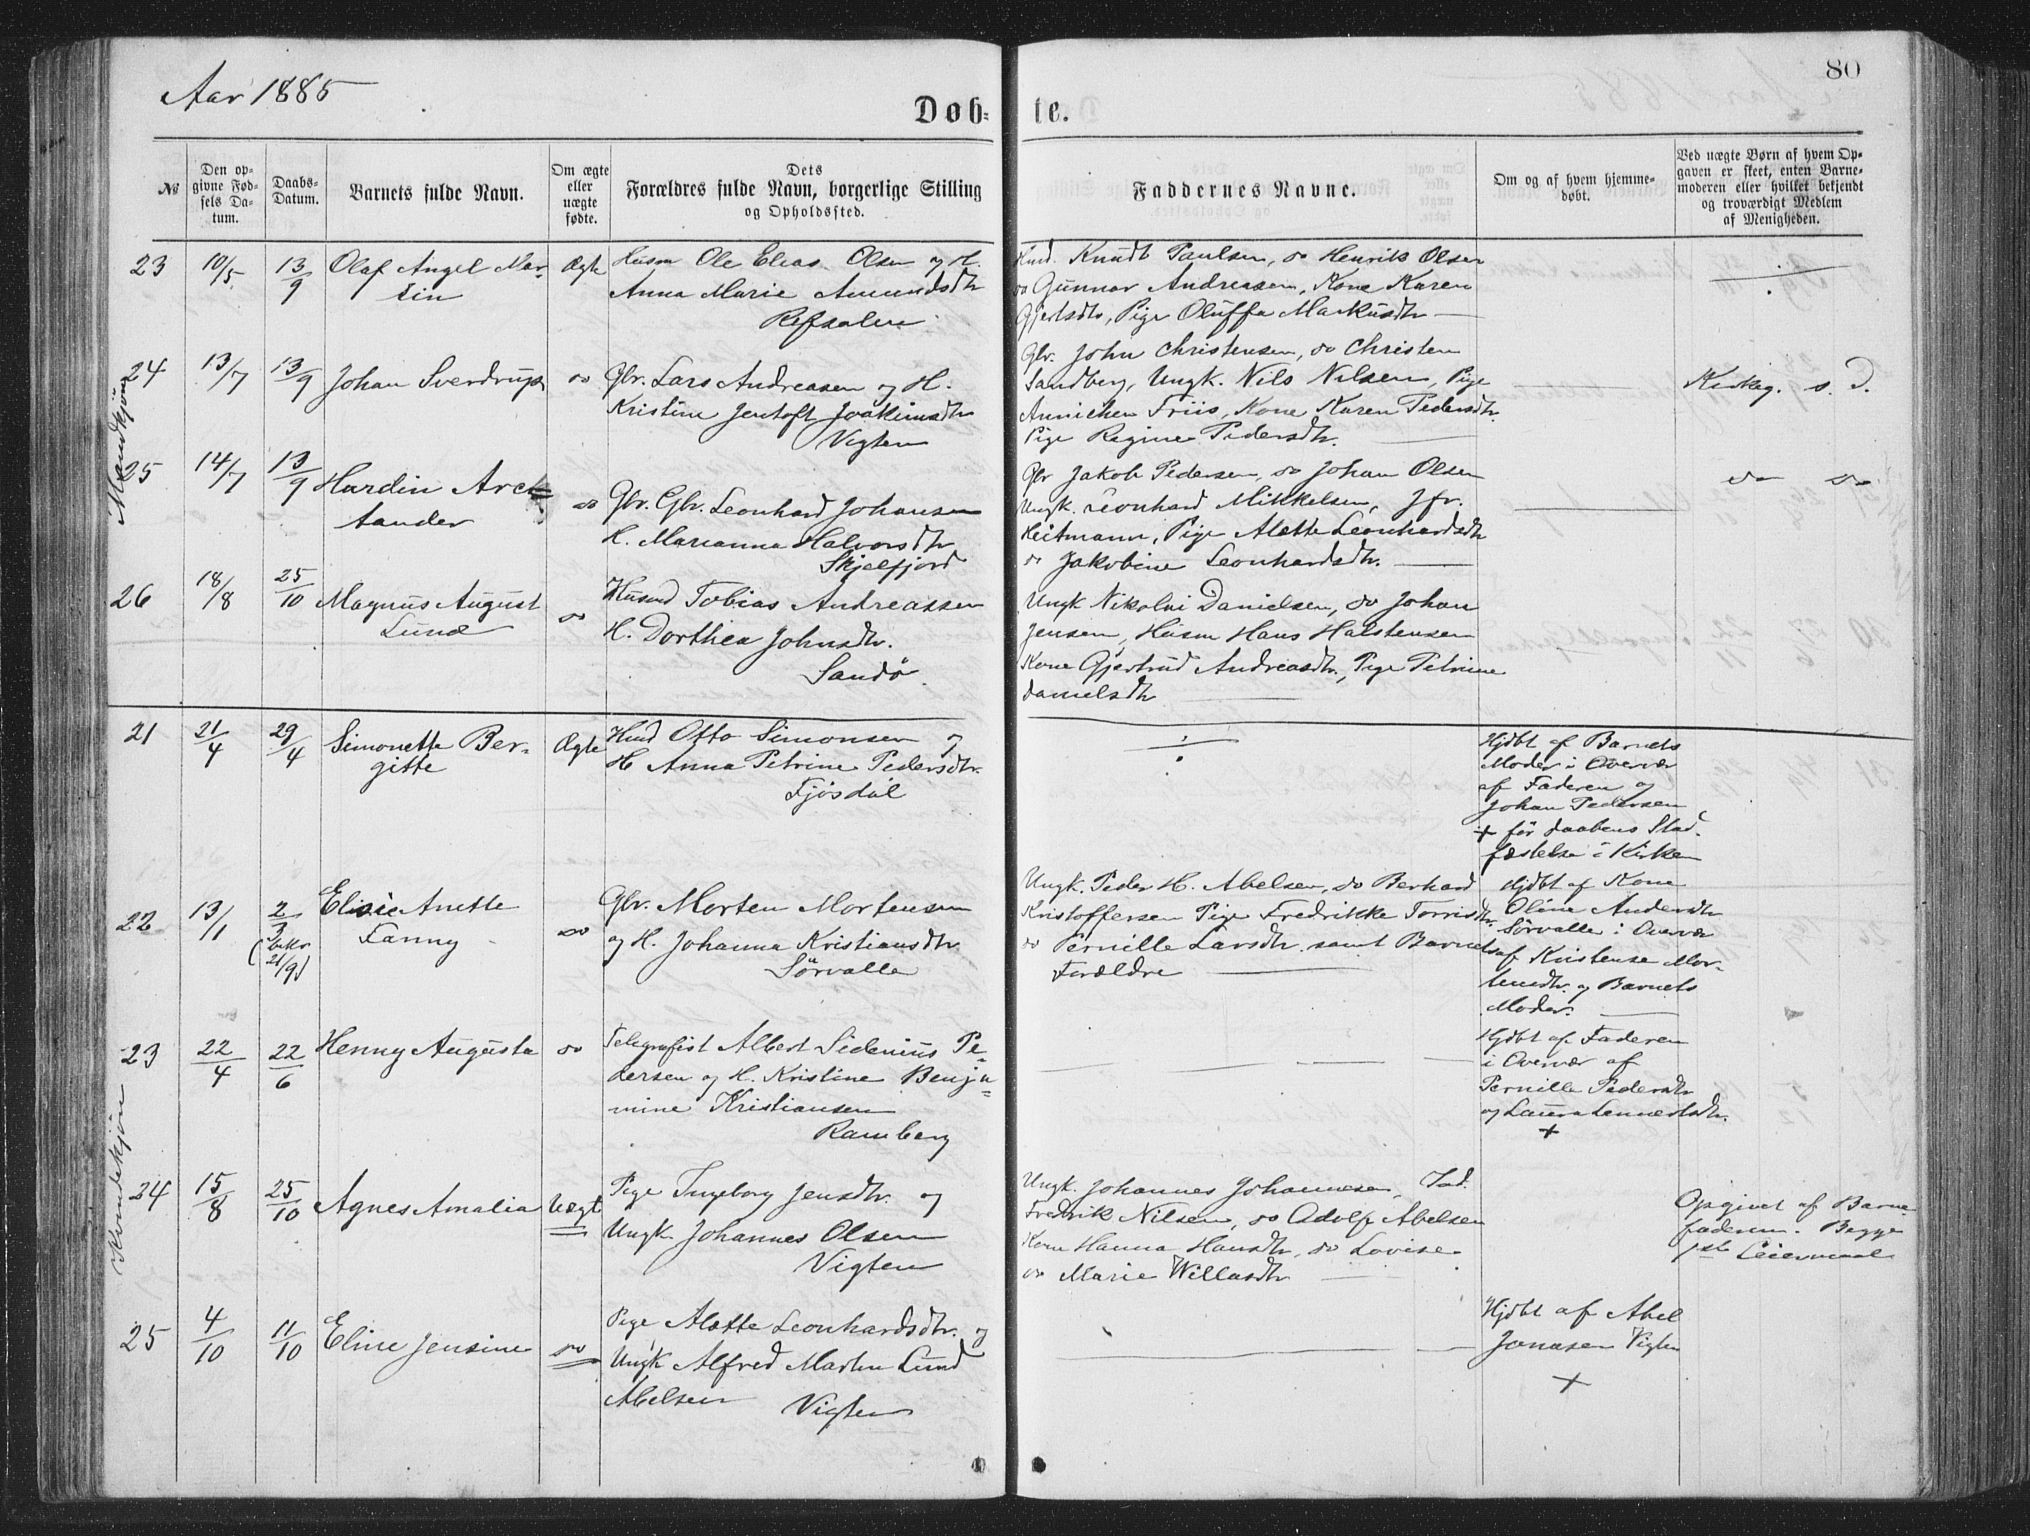 Aar 1885
80
Døb-
te.
№
Den op-
givne Fød-
sels Da-
tum.
Daabs-
Datum.
Barnets fulde Navn.
Om ægte
eller
uægte
fødte.
Dets
Forældres fulde Navn, borgerlige Stilling
og Opholdssted.
Faddernes Navne.
Om og af hvem hjemme-
døbt.
Ved uægte Børn af hvem Op-
gaven er skeet, enten Barne-
moderen eller hvilket bekjendt
og troværdigt Medlem
af Menigheden.
Mandkjøn
23 10/5 13/9 Olaf Angel Mar-
tin
Ægte
Husm Ole Elias Olsen og H.
Anna Marie Amundsdtr
Refsalen
Knudt Paulsen, do Henrik Olsen
do Gunnar Andreasen, Kone Karen
Gjertsdtr, Pige Oluffa Markusdtr
24 13/7 13/9 Johan Sverdrup
do
Gbr. Lars Andreasen og H.
Kristine Jentoft Joakimsdtr
Vigten
Gbr. John Christensen, do Christen
Sandberg, Ungk. Nils Nilsen, Pige
Annichen Friis, Kone Karen Pedersdtr.
Pige Regine Pedersdtr.
Kirkeg. s. D.
25 14/7 13/9 Hardin Arc-
tander
do
Gbr. Gbr. Leonhard Johansen
H. Marianna Halvorsdtr
Skjelfjord
Gbr Jakob Pedersen, do Johan Olsen
Ungk. Leonhard Mikkelsen, Jfr.
Heitmann, Pige Alette Leonhardsdtr
do Jakobine Leonhardsdtr.
do do
26 18/8 25/10 Magnus August
Lund
do
Husmd Tobias Andreassen
H. Dorthea Johnsdtr.
Sandø
Ungk Nikolai Danielsen, do Johan
Jensen, Husm Hans Halstensen
Kone Gjertrud Andreasdtr, Pige Petrine
Danielsdtr
Kvindekjøn
21 21/4 29/4 Simonette Ber-
gitte
Ægte
Husmd Otto Simonsen og
H Anna Petrine Pedersdtr.
Fjøsdal
Hjdbt af Barnets
Moder i Overvær
af Faderen og
Johan Pedersen
+ før Daabens Stad-
fæstelse i Kirken
22 13/1 2/3
(bekr
21/9)
Elisie Anette
Fanny
do
Gbr. Morten Mortensen
og H. Johanna Kristiansdtr.
Sørvalle
Ungk. Peder H. Abelsen, do Berhard
Kristoffersen Pige Fredrikke Torrisdtr.
do Pernille Larsdtr samt Barnets
Forældre
Hjdbt af Kone
Oline Andersdtr
Sørvalle i Overvær
af Kristense Mor-
tensdtr. og Barnets
Moder.
23 22/4 22/6 Henny Augusta
do
Telegrafist Albert Sidenius Pe-
dersen og H. Kristine Benja-
mine Kristiansen
Ramberg
Hjdbt af Faderen
i Overvær af
Pernille Pedersdtr
og Laura Lennertsdtr.
+
24 15/8 25/10 Agnes Amalia
Uægt
Pige Ingeborg Jensdtr. og
Ungk. Johannes Olsen
Vigten
Ungk. Johannes Johannesen, Fad.
Fredrik Nilsen, do Adolf Abelsen
Kone Hanna Hansdtr, do Lovise
do Marie Willasdtr
Opgivet af Barne
faderen. Begge
1ste Leiermaal
25 4/10 11/10 Eline Jensine
do
Pige Alette Leonhardsdtr. og
Ungk Alfred Martin Lund
Abelsen Vigten
Hjdbt af Abel
Jonasen Vigten
+